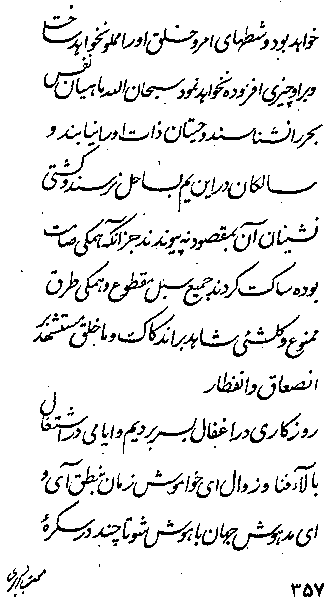 خواهد بود و شطهای امر و خلق او را مملو نخواهد ساخت
و بر او چیزی افزوده نخواهد نمود سبحان الله ماهیان نفس
بحر را نشناسند و حیتان ذات او را نیابند و
سالکان در این یم بساحل نرسند و کشتی
نشینان آن بمقصود نه پیوندند جز آنکه همگی صامت
بوده ساکت کردند جمیع سبل مقطوع و همگی طرق
ممنوع و کلشئی شاهد براند کاکت و ما خلق مستشهد
انصعاق و انفطار
روزکاری در اغفال بسر بردیم و ایامی در اشتغال
بالاء فنا و زوال ای خواموش زمان بنطق آی و
ای مدهوش جهان باهوش شو تا چند در سکرهٔ
۳۵۷